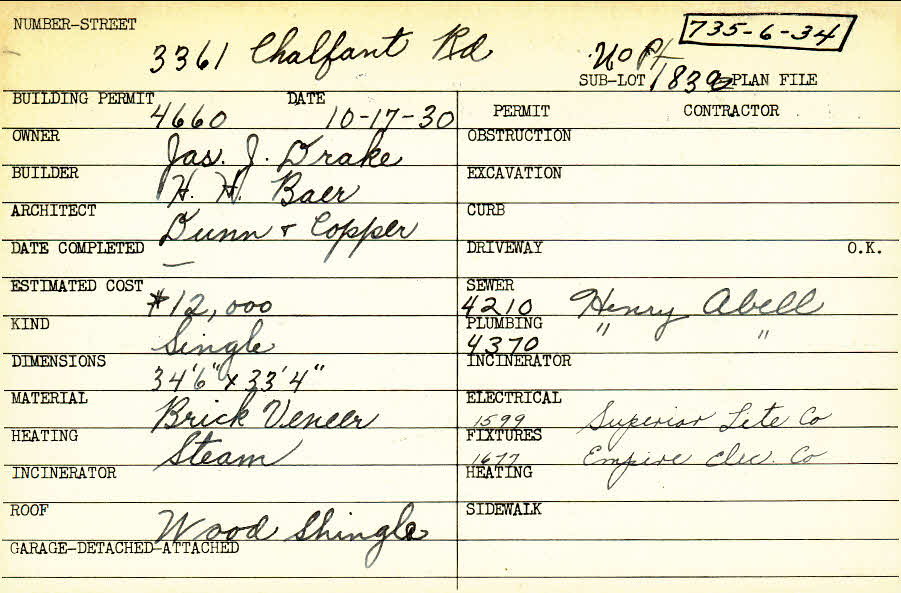 NUMBER-STREET
735-6-34
3361 Chalfant Rd
No Pt
SUB-LOT 1839 PLAN FILE
BUILDING PERMIT DATE PERMIT CONTRACTOR
4660 10-17-30
OWNER Jas. J. Drake OBSTRUCTION
BUILDER H. H. Baer EXCAVATION
ARCHITECT Dunn & Copper CURB
DATE COMPLETED — DRIVEWAY O.K.
ESTIMATED COST $12,000 SEWER 4210 Henry Abell
KIND Single PLUMBING 4370 " "
DIMENSIONS 34'6" x 33'4" INCINERATOR
MATERIAL Brick Veneer ELECTRICAL 1599 Superior Lite Co
HEATING Steam FIXTURES 1677 Empire Elec. Co
INCINERATOR HEATING
ROOF Wood Shingle SIDEWALK
GARAGE-DETACHED-ATTACHED